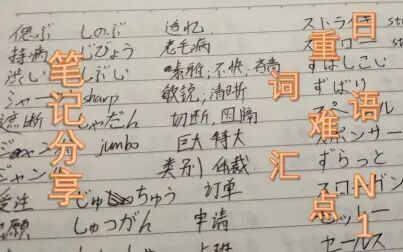 偲ぶ しのぶ 追忆
持病 じびょう 老毛病
渋い しぶい 素雅;不快;苦涩
シャープ sharp 敏锐;清晰
遮断 しゃだん 切断,因隔
ジャンボ jumbo 巨大 特大
ジャンル 类别 体裁
受注 じゅちゅう 订单
出願 しゅつがん 申请
ストライキ
ストロー
すばしこい
ずばり
スペース
スポンサー
ずらっと
スローガン
セールス
笔记分享
日语N1
重难点
词汇